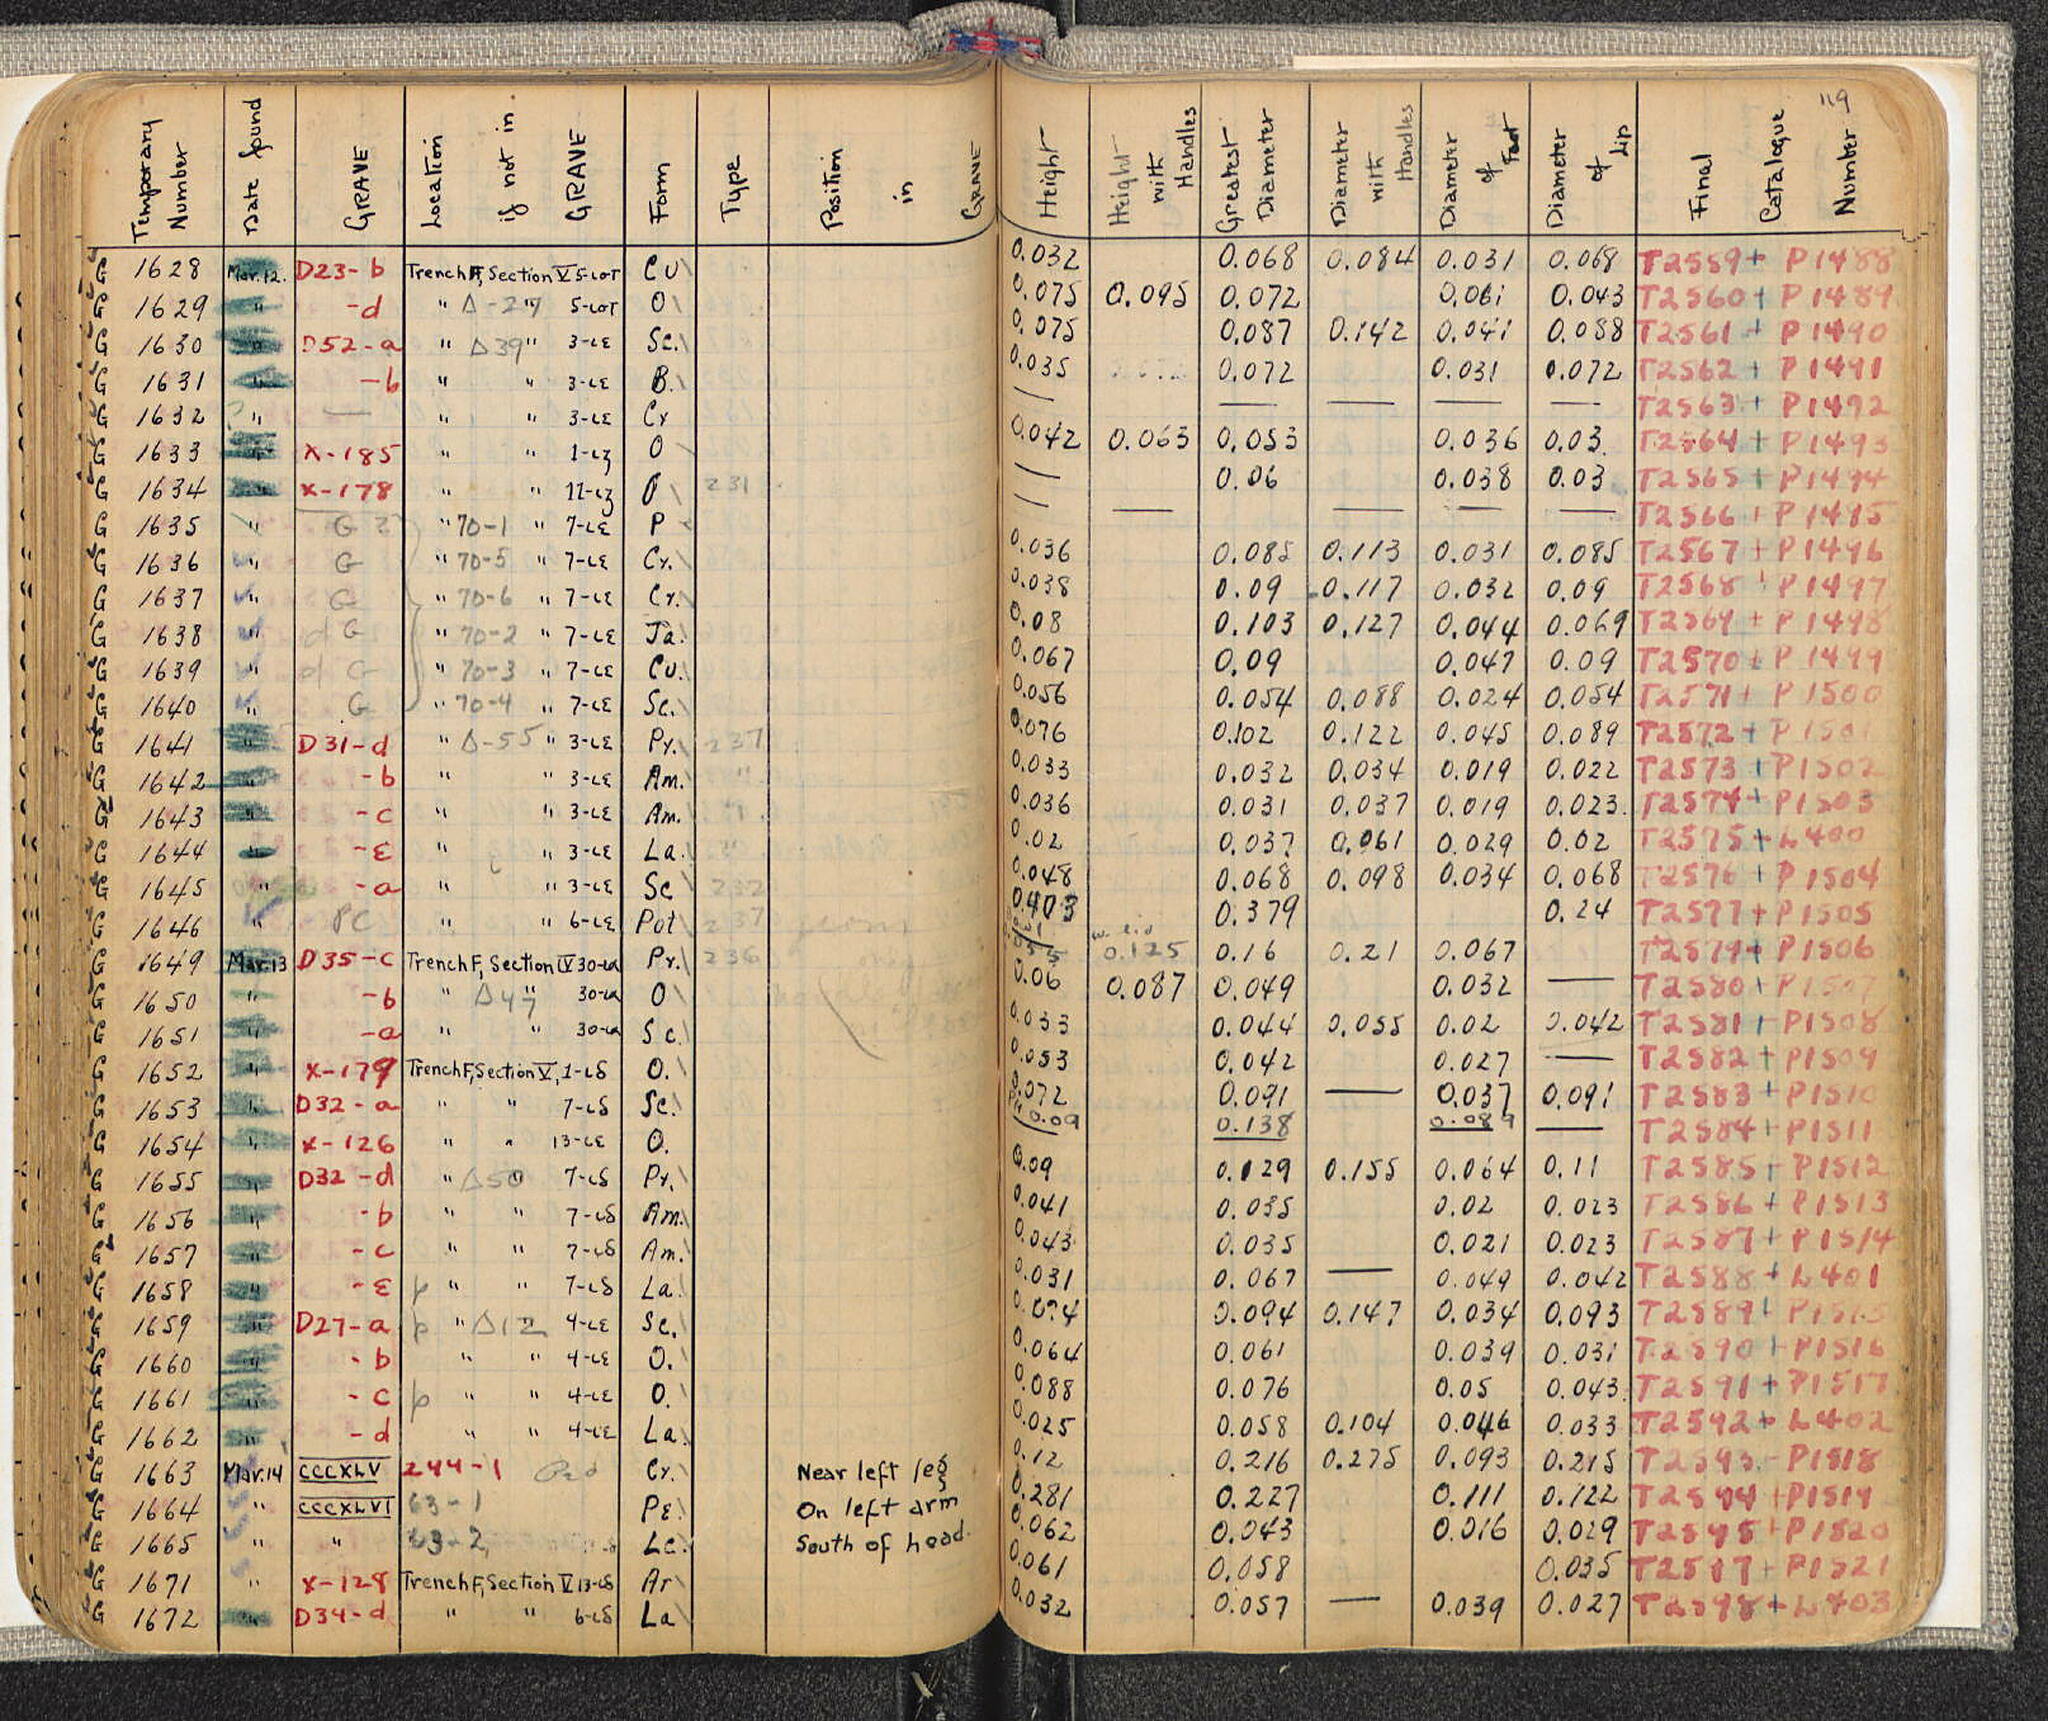 119
Temporary Number | Date found | GRAVE | Location if not in GRAVE | Form | Type | Position in GRAVE | Height | Height with Handles | Greatest Diameter | Diameter with Handles | Diameter of Foot | Diameter of Lip | Final Catalogue Number
G 1628 Mar.12. D23-b Trench F, Section V 5-LOT Cu 0.032 0.068 0.084 0.031 0.068 T2559+ P1488
G 1629 " -d " Δ-27 " 5-LOT O 0.075 0.095 0.072 0.061 0.043 T2560+ P1489
G 1630 " D52-a " Δ39 " 3-LE Sc. 0.075 0.087 0.142 0.041 0.088 T2561+ P1490
G 1631 " -b " " 3-LE B. 0.035 0.072 0.031 0.072 T2562+ P1491
G 1632 ? " — " " 3-LE Cy — — — — — T2563+ P1492
G 1633 " X-185 " " 1-LZ O 0.042 0.063 0.053 0.036 0.03. T2564+ P1493
G 1634 " X-178 " " 11-LZ O 231 — 0.06 0.038 0.03. T2565+ P1494
G 1635 " G ? " 70-1 " 7-LE P — — — — — T2566+ P1495
G 1636 " G " 70-5 " 7-LE Cy. 0.036 0.085 0.113 0.031 0.085 T2567+ P1496
G 1637 " G " 70-6 " 7-LE Cy. 0.038 0.09 0.117 0.032 0.09 T2568+ P1497
G 1638 " d G " 70-2 " 7-LE Ja. 0.08 0.103 0.127 0.044 0.069 T2569+ P1498
G 1639 " d G " 70-3 " 7-LE Cu. 0.067 0.09 0.047 0.09 T2570+ P1499
G 1640 " G " 70-4 " 7-LE Sc. 0.056 0.054 0.088 0.024 0.054 T2571+ P1500
G 1641 " D31-d " Δ-55 " 3-LE Py. 237 0.076 0.102 0.122 0.045 0.089 T2572+ P1501
G 1642 " -b " " 3-LE Am. " 0.033 0.032 0.034 0.019 0.022 T2573+ P1502
G 1643 " -c " " 3-LE Am. " 0.036 0.031 0.037 0.019 0.023. T2574+ P1503
G 1644 " -E " " 3-LE La. " 0.02 0.037 0.061 0.029 0.02 T2575+ L400
G 1645 " -a " " 3-LE Sc 232 0.048 0.068 0.098 0.034 0.068 T2576+ P1504
G 1646 " PC " " 6-LE Pot 237 0.403 0.379 0.24 T2577+ P1505
G 1649 Mar.13 D35-c Trench F, Section IV 30-LA Py. 236 w. lid 0.125 0.16 0.21 0.067 T2579+ P1506
G 1650 " -b " Δ47 " 30-LA O 0.06 0.087 0.049 0.032 — T2580+ P1507
G 1651 " -a " " 30-LA Sc. 0.033 0.044 0.055 0.02 0.042 T2581+ P1508
G 1652 " X-179 Trench F, Section V, 1-LS O. 0.053 0.042 0.027 — T2582+ P1509
G 1653 " D32-a " " 7-LS Sc. 0.072 0.091 — 0.037 0.091 T2583+ P1510
G 1654 " X-126 " " 13-LE O. 0.09 0.138 0.089 — T2584+ P1511
G 1655 " D32-d " Δ50 7-LS Py. 0.09 0.129 0.155 0.064 0.11 T2585+ P1512
G 1656 " -b " " 7-LS Am. 0.041 0.035 0.02 0.023 T2586+ P1513
G 1657 " -c " " 7-LS Am. 0.043 0.035 0.021 0.023 T2587+ P1514
G 1658 " -E p " " 7-LS La. 0.031 0.067 — 0.049 0.042 T2588+ L401
G 1659 " D27-a p " Δ12 4-LE Sc. 0.094 0.147 0.034 0.093 T2589+ P1515
G 1660 " -b " " 4-LE O. 0.064 0.061 0.039 0.031 T2590+ P1516
G 1661 " -c p " " 4-LE O. 0.088 0.076 0.05 0.043. T2591+ P1517
G 1662 " -d " " 4-LE La. 0.025 0.058 0.104 0.046 0.033 T2592+ L402
G 1663 Mar.14 CCCXLV 244-1 Cy. Near left leg 0.12 0.216 0.275 0.093 0.215 T2593- P1518
G 1664 " CCCXLVI 63-1 PE. On left arm 0.281 0.227 0.111 0.122 T2594+ P1519
G 1665 " " 63-2 LE. South of head. 0.062 0.043 0.016 0.029 T2595+ P1520
G 1671 " X-128 Trench F, Section V 13-LS Ar 0.061 0.058 0.035 T2597+ P1521
G 1672 " D34-d " " 6-LS La 0.032 0.057 — 0.039 0.027 T2598+ L403